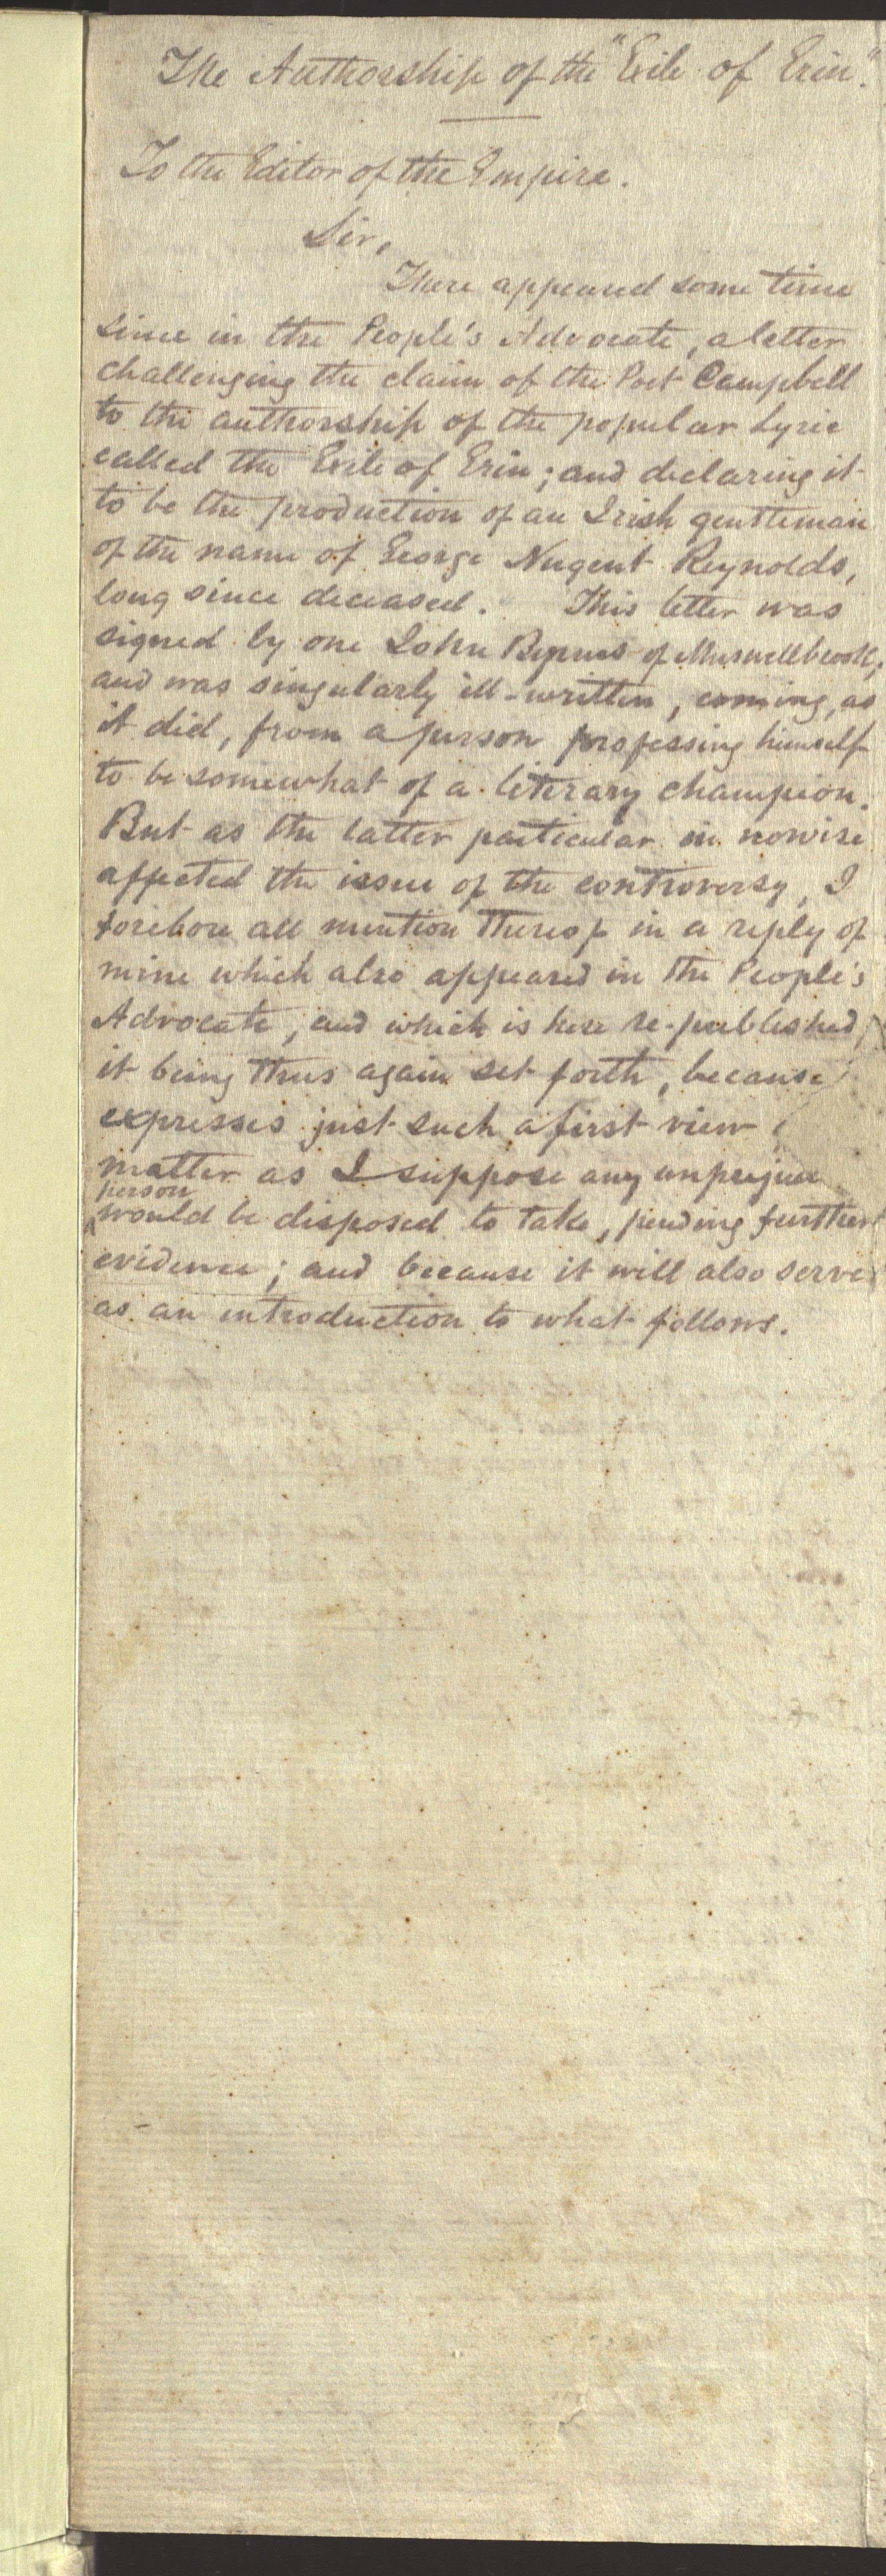 The Authorship of the "Exile of Erin".
To the Editor of the Empire.
Sir,
There appeared some time
since in the People's Advocate, a letter
challenging the claim of the Poet Campbell
to the authorship of the popular Lyric
called the Exile of Erin; and declaring it
to be the production of an Irish gentleman
of the name of George Nugent Reynolds,
long since deceased. This letter was
signed by one John Byrnes of Muswellbrook,
and was singularly ill-written, coming, as
it did, from a person professing himself
to be somewhat of a literary champion.
But as the latter particular in nowise
affected the issue of the controversy, I
forebore all mention thereof in a reply of
mine which also appeared in the People's
Advocate, and which is here re-published,
it being thus again set forth, because
expresses just such a first view
matter as I suppose any
person
would be disposed to take, pending further
evidence; and because it will also serve
as an introduction to what follows.